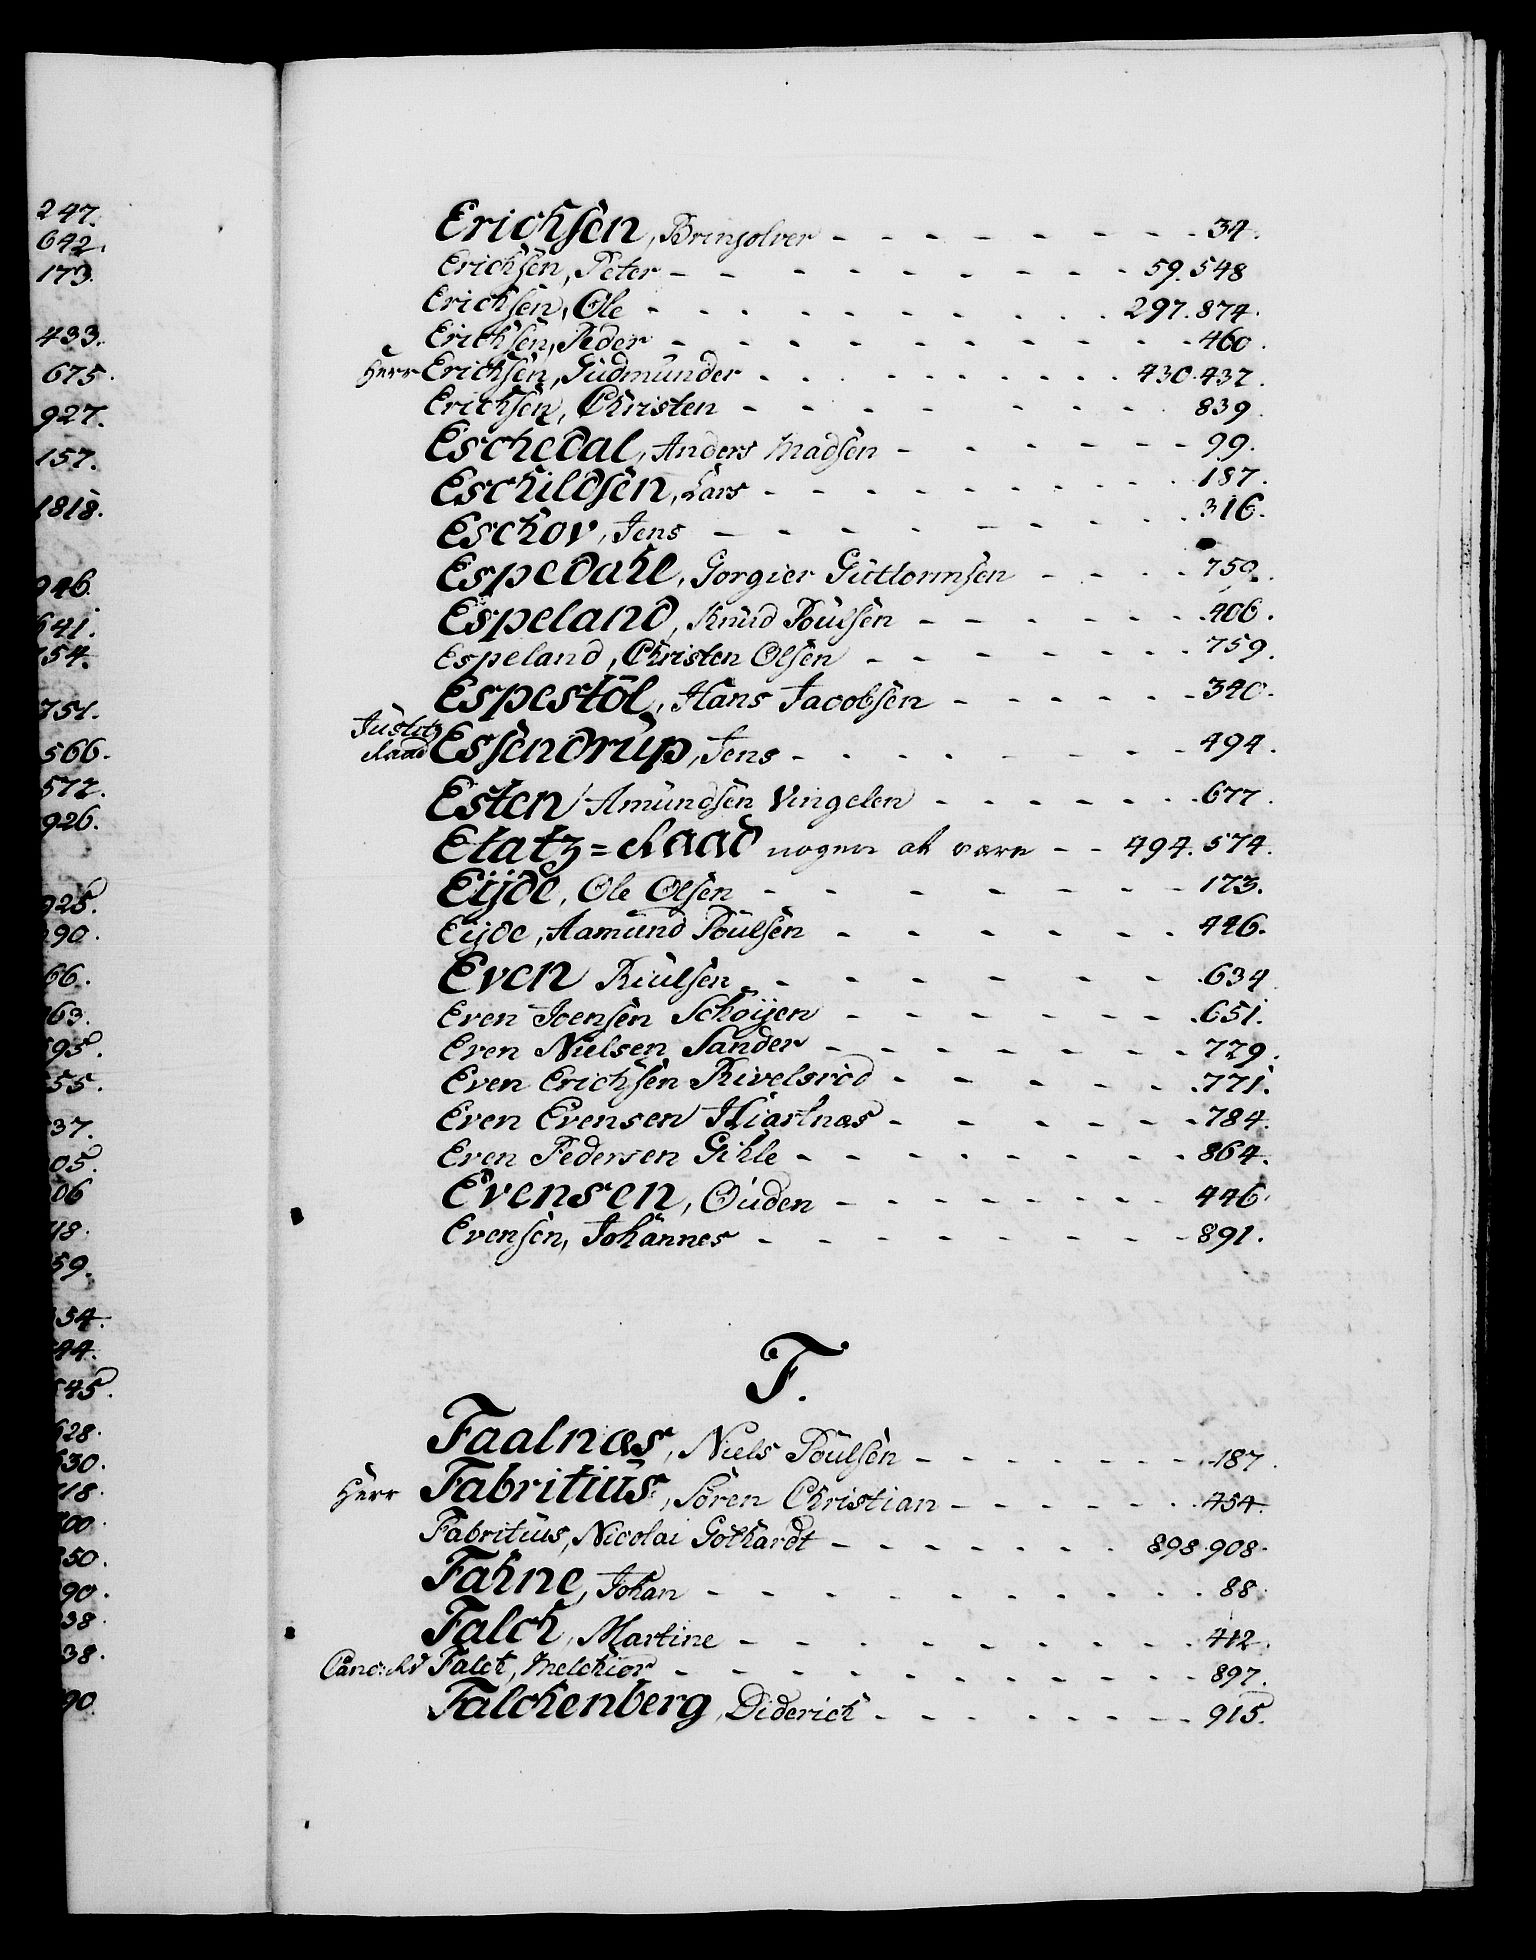 247.
642.
173.
433.
675.
927.
157.
1818.
946.
641.
754.
751.
566.
577.
926.
925.
290.
66.
63.
95.
55.
37.
05.
06
18.
59.
54.
44.
45.
628.
630.
18.
00.
50.
90.
38.
38.
90.
Erichsen, Brinjolver - - - - - - - - 34.
Erichsen, Peter - - - - - - - - - 59. 548
Erichsen, Ole - - - - - - - - - 297. 874.
Erichsen, Peder - - - - - - - - - 460.
Herr Erichsen, Gudmunder - - - - - - - - 430. 437.
Erichsen, Christen - - - - - - - - 839.
Eschedal, Anders Madsen - - - - - - - 99.
Eschildsen, Lars - - - - - - - - - 187.
Eschov, Jens - - - - - - - - - 316.
Espedahl, Gorgier Guttormsen - - - - 750.
Espeland, Knud Poulsen - - - - - - - 406.
Espeland, Christen Olsen - - - - - - - 759.
Espestøl, Hans Jacobsen - - - - - - 340.
Justitz
Raad Essendrup, Jens - - - - - - - - 494.
Esten Amundsen Vingelen - - - - - - 677.
Etatz=Raad nogen at være - - 494. 574.
Eijde, Ole Olsen - - - - - - - - 173.
Eijde, Aamund Poulsen - - - - - - 446.
Even Riulsen - - - - - - - - 634
Even Joensen Schøijen - - - - - - - 651.
Even Nielsen Sander - - - - - - - - 729.
Even Erichsen Rivelsrød - - - - - - 771.
Even Evensen Hiartnæs - - - - - - 784.
Even Pedersen Gihle - - - - - - - - 864.
Evensen, Ouden - - - - - - - - 446.
Evensen, Johannes - - - - - - - - - 891.
F.
Faalnæs, Niels Poulsen - - - - - - - 187.
Herr Fabritius, Søren Christian - - - - - - 454.
Fabritius, Nicolai Gothardt - - - - - - - 898. 908.
Fahne, Johan - - - - - - - - - 88.
Falch, Martine - - - - - - - - - 412.
Canc: Rd Falch, Melchior - - - - - - - - - - 897.
Falckenberg, Diderich - - - - - - - - 915.